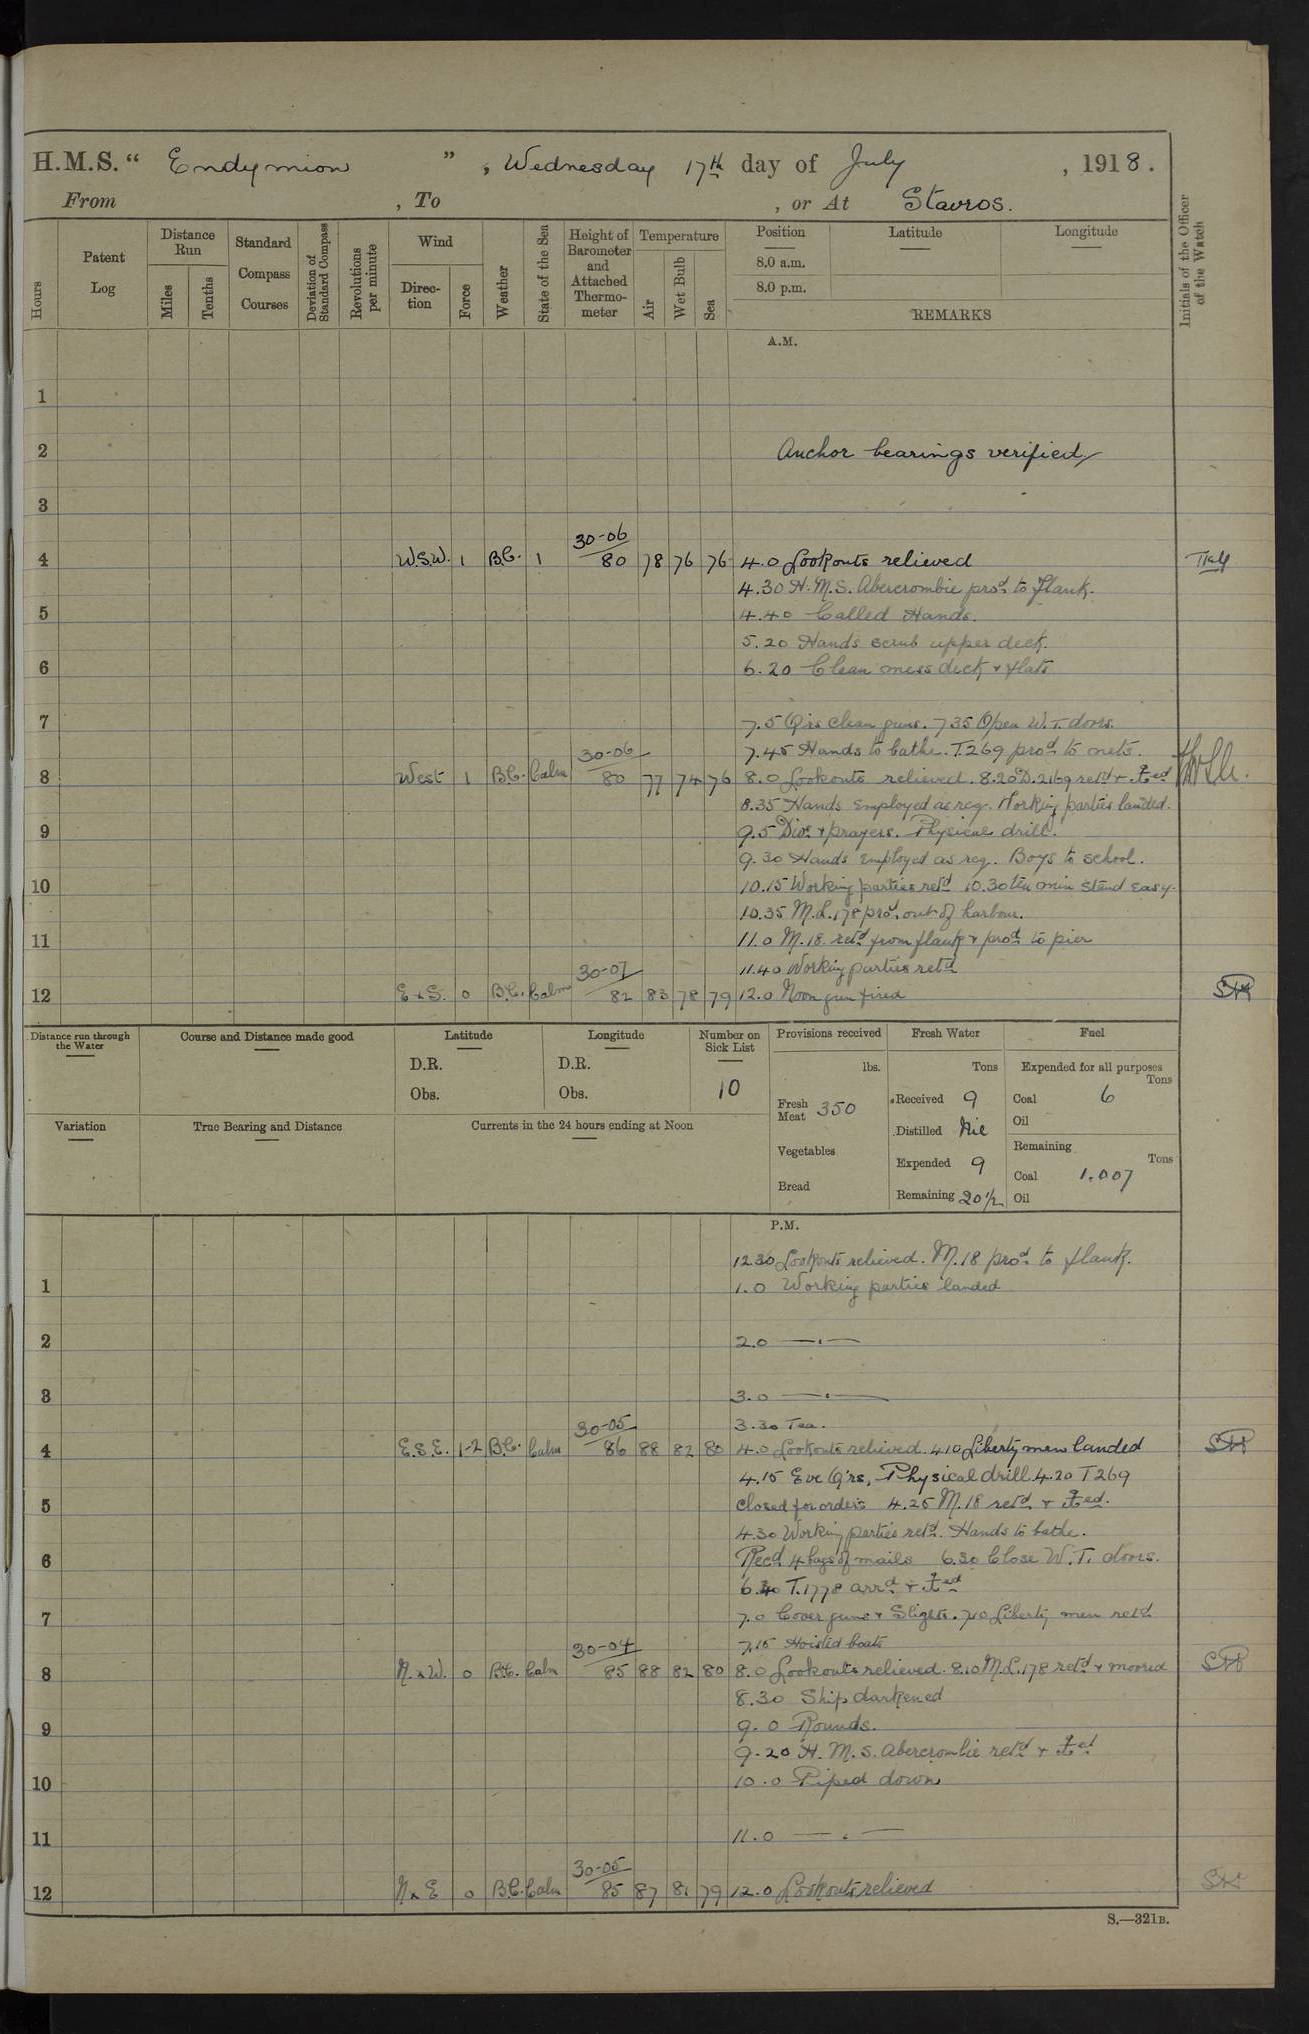 H.M.S. “ Endymion ” , Wednesday 17th day of July , 1918.
From , To , or At Stavros.
Hours Patent Log Distance Run Miles Tenths Standard Compass Courses Deviation of Standard Compass Revolutions per minute Wind Direction Force Weather State of the Sea Height of Barometer and Attached Thermometer Temperature Air Wet Bulb Sea
Position Latitude Longitude
8.0 a.m.
8.0 p.m.
REMARKS
Initials of the Officer of the Watch
A.M.
1
2 Anchor bearings verified
3
30-06
4 W.S.W. 1 B.C. 1 80 78 76 76 4.0 Lookouts relieved
4.30 H.M.S. Abercrombie procd to flank.
5 4.40 Called Hands.
5.20 Hands scrub upper deck.
6 6.20 Clean mess deck & flats
7 7.5 Qrs clean guns. 7 35 Open W.T. doors.
30-06 7.45 Hands to bathe. T.269 procd to nets.
8 West 1 B.C. Calm 80 77 74 76 8.0 Lookouts relieved. 8.20 D.2169 retd &
8.35 Hands employed as req. Working parties landed.
9 9.5 Divs & prayers. Physical drill.
9.30 Hands employed as req. Boys to school.
10 10.15 Working parties retd 10.30 ten min stand easy.
10.35 M.L. 178 procd out of harbour.
11 11.0 M.18 retd from flank & procd to pier
30-07 11.40 Working parties retd
12 E x S. 0 B.C. Calm 82 83 78 79 12.0 Noon gun fired
Distance run through the Water Course and Distance made good Latitude Longitude Number on Sick List Provisions received Fresh Water Fuel
D.R. D.R. 10 lbs. Tons Expended for all purposes Tons
Obs. Obs. Fresh Meat 350 Received 9 Coal 6
Variation True Bearing and Distance Currents in the 24 hours ending at Noon Distilled Nil Oil
Vegetables Expended 9 Remaining Tons
Bread Remaining 20½ Coal 1.007
Oil
P.M.
12.30 Lookouts relieved. M.18 procd to flank.
1 1.0 Working parties landed
2 2.0 — . —
3 3.0 — . —
30-05 3.30 Tea.
4 E.S.E. 1-2 B.C. Calm 86 88 82 80 4.0 Lookouts relieved. 4.10 Liberty men landed
4.15 Eve Qrs, Physical drill 4.20 T 269
5 closed for orders 4.25 M.18 retd &
4.30 Working parties retd. Hands to bathe.
6 Recd 4 bags of mails 6.30 Close W.T. doors.
6.40 T.1778 arrd &
7 7.0 Cover guns & Slights. 7.10 Liberty men retd
30-04 7.15 Hoisted boats
8 N. x W. 0 B.C. Calm 85 88 82 80 8.0 Lookouts relieved. 8.10 M.L. 178 retd & moored
8.30 Ship darkened
9 9.0 Rounds.
9.20 H.M.S. Abercrombie retd &
10 10.0 Piped down
11 11.0 — . —
30-05
12 N x E 0 B.C. Calm 85 87 81 79 12.0 Lookouts relieved
S.—321B.